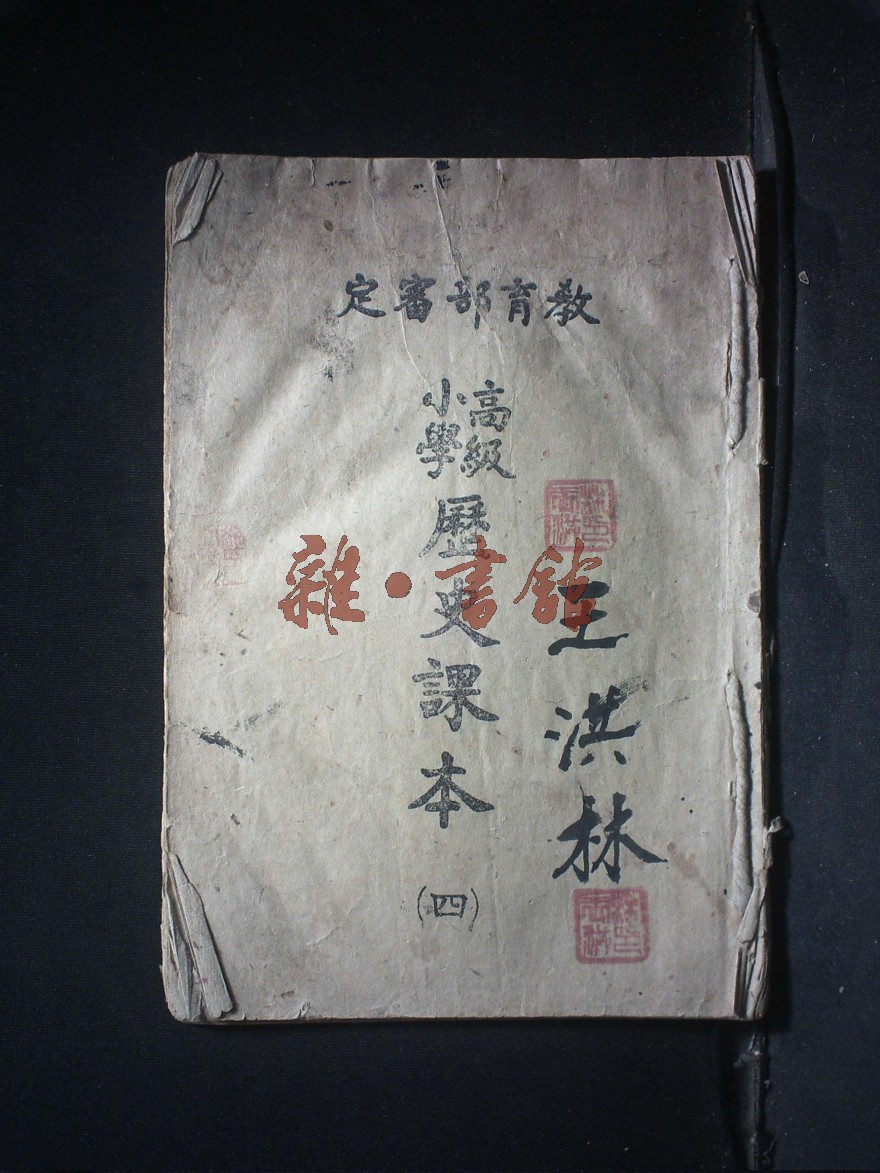 教育部審定
高級
小學
歷史課本
(四)
王洪林
雜·書館